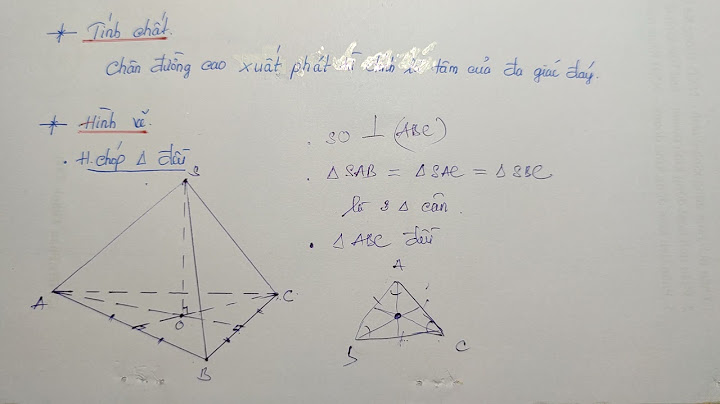 * Tính chất.
Chân đường cao xuất phát từ đỉnh là tâm của đa giác đáy.
* Hình vẽ.
. H.chóp Δ đều
S
A
C
O
B
. SO ⊥ (ABC)
. Δ SAB = Δ SAC = Δ SBC
là 3 Δ cân.
. Δ ABC đều
A
B
C